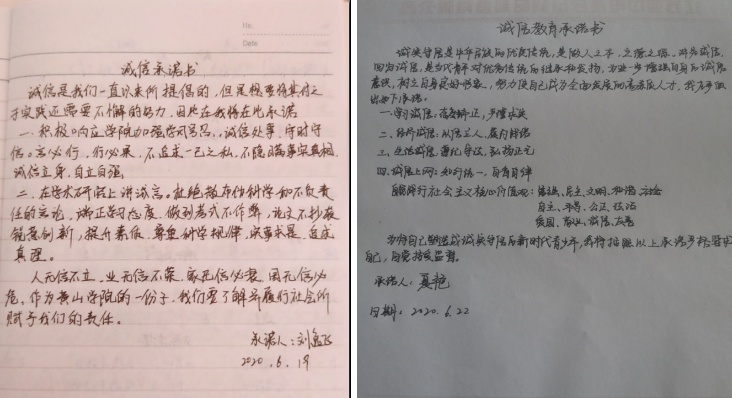 No.
Date
诚信承诺书
诚信是我们一直以来所提倡的，但是想要将其付之
于实践还需要不懈的努力，因此在此我将在此承诺
一．积极响应学院加强学习号召，诚信处事，守时守
信。言必行，行必果，不追求一己之私，不隐瞒事实真相
诚信立身，自立自强。
二．在学术研究上讲诚言。杜绝撒布伪科学和不负责
任的言论，端正学习态度，做到考试不作弊，论文不抄袭
锐意创新，提升素低，尊重科学规律，实事求是，追求
真理。
人无信不立，业无信不荣，家无信必衰，国无信必
危，作为黄山学院的一份子，我们要了解并履行社会所
赋予我们的责任。
承诺人：刘
2020.6.19
诚信教育承诺书
诚实守信是中华民族的优良传统，是做人之本，立德之源。
因为诚信，是当代青年对优秀传统的继承和发扬，为进一步增强自身的诚信
意识，树立自身良好形象，努力使自己成为全面发展的高素质人才，我在此做
出如下承诺。
一．学习诚信，态度端正，严谨求实
二．经济诚信，以信立人，履行
三．生活诚信，遵纪守法，弘扬正气
四．诚信上网：知行统一，自尊自律
自觉践行社会主义核心价值观：富强、民主、文明、和谐
自主、平等、公正、法治
爱国、敬业、诚信、友善
为将自己塑造成诚实守信的新时代青少年，我将按照以上承诺严格要求
自己，自觉接受监督。
承诺人：夏艳
日期：2020.6.22